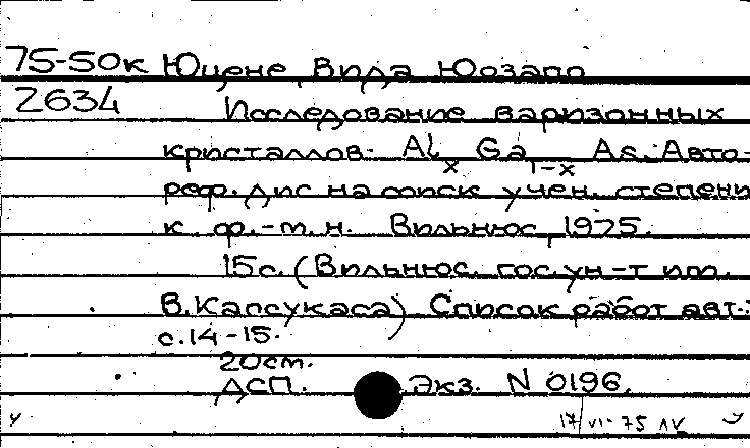 75-50к Юцене Вида Юозапо
2634 Исследование варизонных
кристаллов Al x Ga 1-x As. Авто-
реф. дис на соиск учен. степени
к. ф.-т. н. Вильнюс, 1975.
15с. (Вильнюс. гос. ун-т им.
В. Капсукаса) Список работ авт.:
с. 14-15.
20см.
ДСП. Экз. N 0196.
17/VI-75